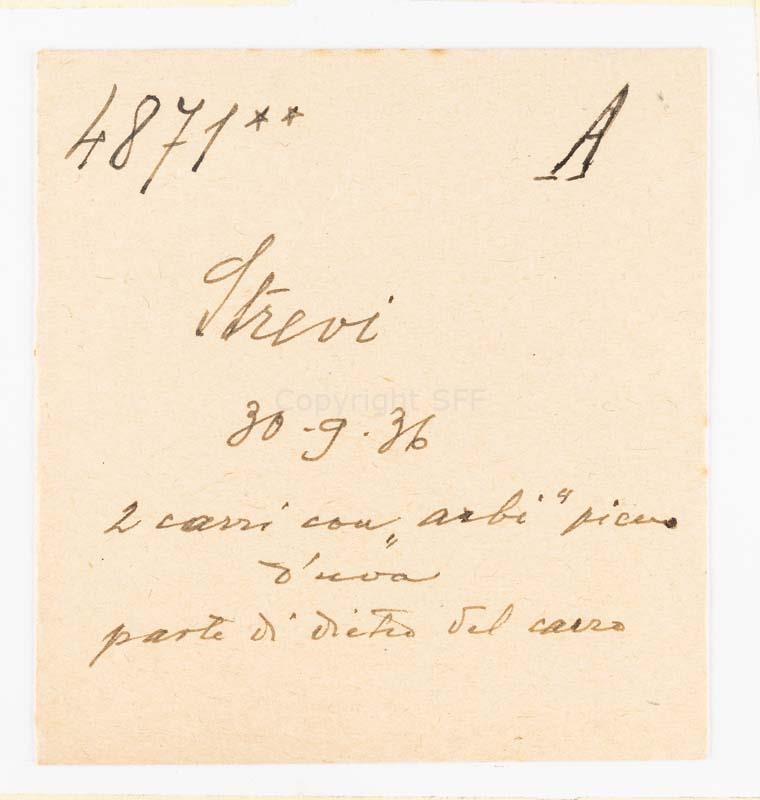 4871** A
Strevi
Copyright SFF
30-9.36
2 carri con „arbi“ pieno
d'uva
parte di dietro del carro